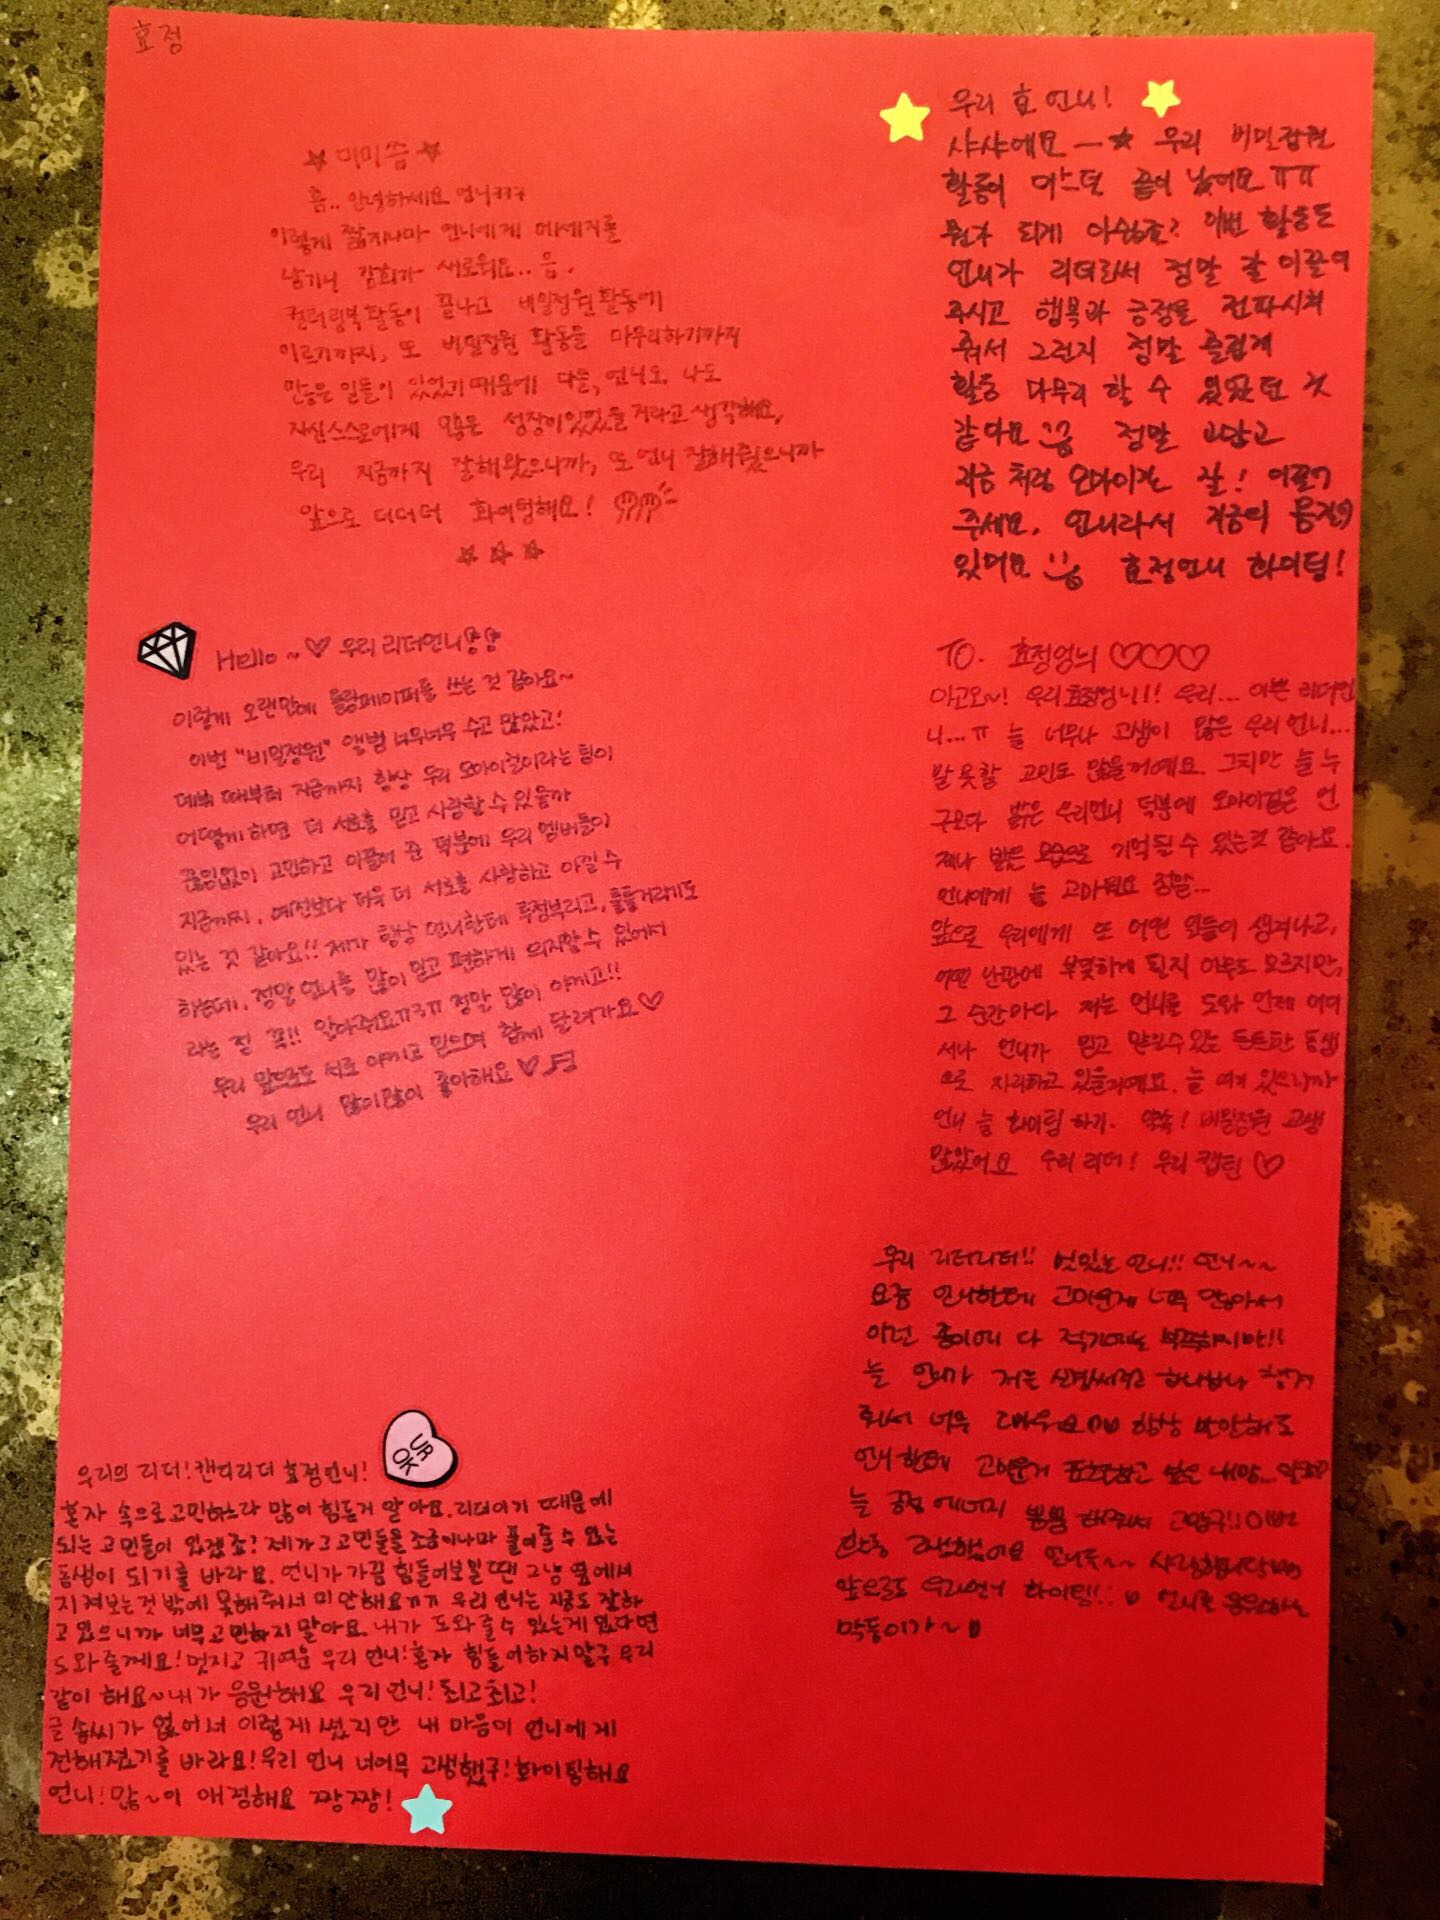 효정
★미미씀★
흠.. 안녕하세요 언니ㅋㅋㅋ
이렇게 짧게나마 언니에게 메세지를
남기니 감회가 새로워요.. 음,
컬러링북 활동이 끝나고 비밀정원 활동에
이르기까지, 또 비밀정원 활동을 마무리하기까지
많은 일들이 있었기 때문에 다들, 언니도 나도
자신스스로에게 많은 성장이있었을거라고 생각해요,
우리 지금까지 잘해왔으니까, 또 언니 잘해줬으니까
앞으로 더더더 화이팅해요!
☆☆☆
우리 효 언니!
샤샤에요―★ 우리 비밀정원
활동이 어느덧 끝이 났어요ㅠㅠ
뭔가 되게 아쉽죠? 이번 활동도
언니가 리더로써 정말 잘 이끌어
주시고 행복과 긍정을 전파시켜
줘서 그런지 정말 즐겁게
활동 마무리 할 수 있었던 것
같아요 정말 고맙고
지금 처럼 오마이걸 잘! 이끌어
주세요. 언니라서 지금의 뭉치가
있어요 효정언니 화이팅!
Hello~♡ 우리 리더언니
이렇게 오랜만에 롤링페이퍼를 쓰는 것 같아요~
이번 "비밀정원" 앨범 너무너무 수고 많았고!
데뷔 때부터 지금까지 항상 우리 오마이걸이라는 팀이
어떻게 하면 더 서로를 믿고 사랑할 수 있을까
끊임없이 고민하고 이끌어 준 덕분에 우리 멤버들이
지금까지, 예전보다 더욱 더 서로를 사랑하고 아낄 수
있는 것 같아요!! 제가 항상 언니한테 투정부리고, 툴툴거리기도
하는데, 정말 언니를 많이 믿고 편하게 의지할 수 있어서
라는 걸 꼭!! 알아줘요ㅠㅋㅠ 정말 많이 아끼고!!
우리 앞으로도 서로 아끼고 믿으며 함께 달려가요♡
우리 언니 많이많이 좋아해요♡♬
TO. 효정엉늬 ♡♡♡
아고오~! 우리효정엉니!! 우리... 이쁜 리더언
니...ㅠ 늘 너무나 고생이 많은 우리 언니...
말 못할 고민도 많을거에요. 그치만 늘 누
구보다 밝은 우리언니 덕분에 오마이걸은 언
제나 밝은 모습으로 기억될 수 있는것 같아요.
언니에게 늘 고마워요 정말...
앞으로 우리에게 또 어떤 일들이 생겨나고,
어떤 난관에 부딪히게 될지 아무도 모르지만,
그 순간마다 저는 언니를 도와 언제 어디
서나 언니가 믿고 맡길수있는 든든한 동생
으로 자리하고 있을거에요. 늘 여기 있으니까
언니 늘 화이팅 하기. 약속! 비밀정원 고생
많았어요 우리 리더! 우리 캡틴♡
우리 리더리더!! 멋있는 언니!! 언니~~
요즘 언니한테 고마운게 너무 많아서
이런 종이에 다 적기에는 부족하지만!!
늘 언니가 저를 신경써주고 하나하나 챙겨
줘서 너무 고마워요 항상 미안해도
언니한테 고마운거 표현하고 싶은 내맘...알죠?
늘 긍정 에너지 뿜뿜 해줘서 고맙구!!이번
활동 고생했어요 언니두~~ 사랑합니당
앞으로도 우리언니 화이팅!! 언니를 응원하는
막둥이가~
UR OK
우리의 리더!캔디리더 효정언니!
혼자 속으로고민하느라 많이 힘든거 알아요.리더이기 때문에
되는 고민들이 있겠죠? 제가 그 고민들을 조금이나마 풀어줄 수 있는
동생이 되기를 바라요. 언니가 가끔 힘들어보일 땐 그냥 옆에서
지켜보는것 밖에 못해줘서 미안해요ㅠㅠ 우리 언니는 지금도 잘하
고 있으니까 너무고민하지 말아요. 내가 도와줄수 있는게 있다면
도와줄게요! 멋지고 귀여운 우리 언니!혼자 힘들어하지말구 우리
같이 해요~내가 응원해요 우리언니!최고최고!
글솜씨가 없어서 이렇게 썼지만 내 마음이 언니에게
전해졌기를 바라요!우리 언니 너어무 고생했구!화이팅해요
언니!많~이 애정해요 짱짱!